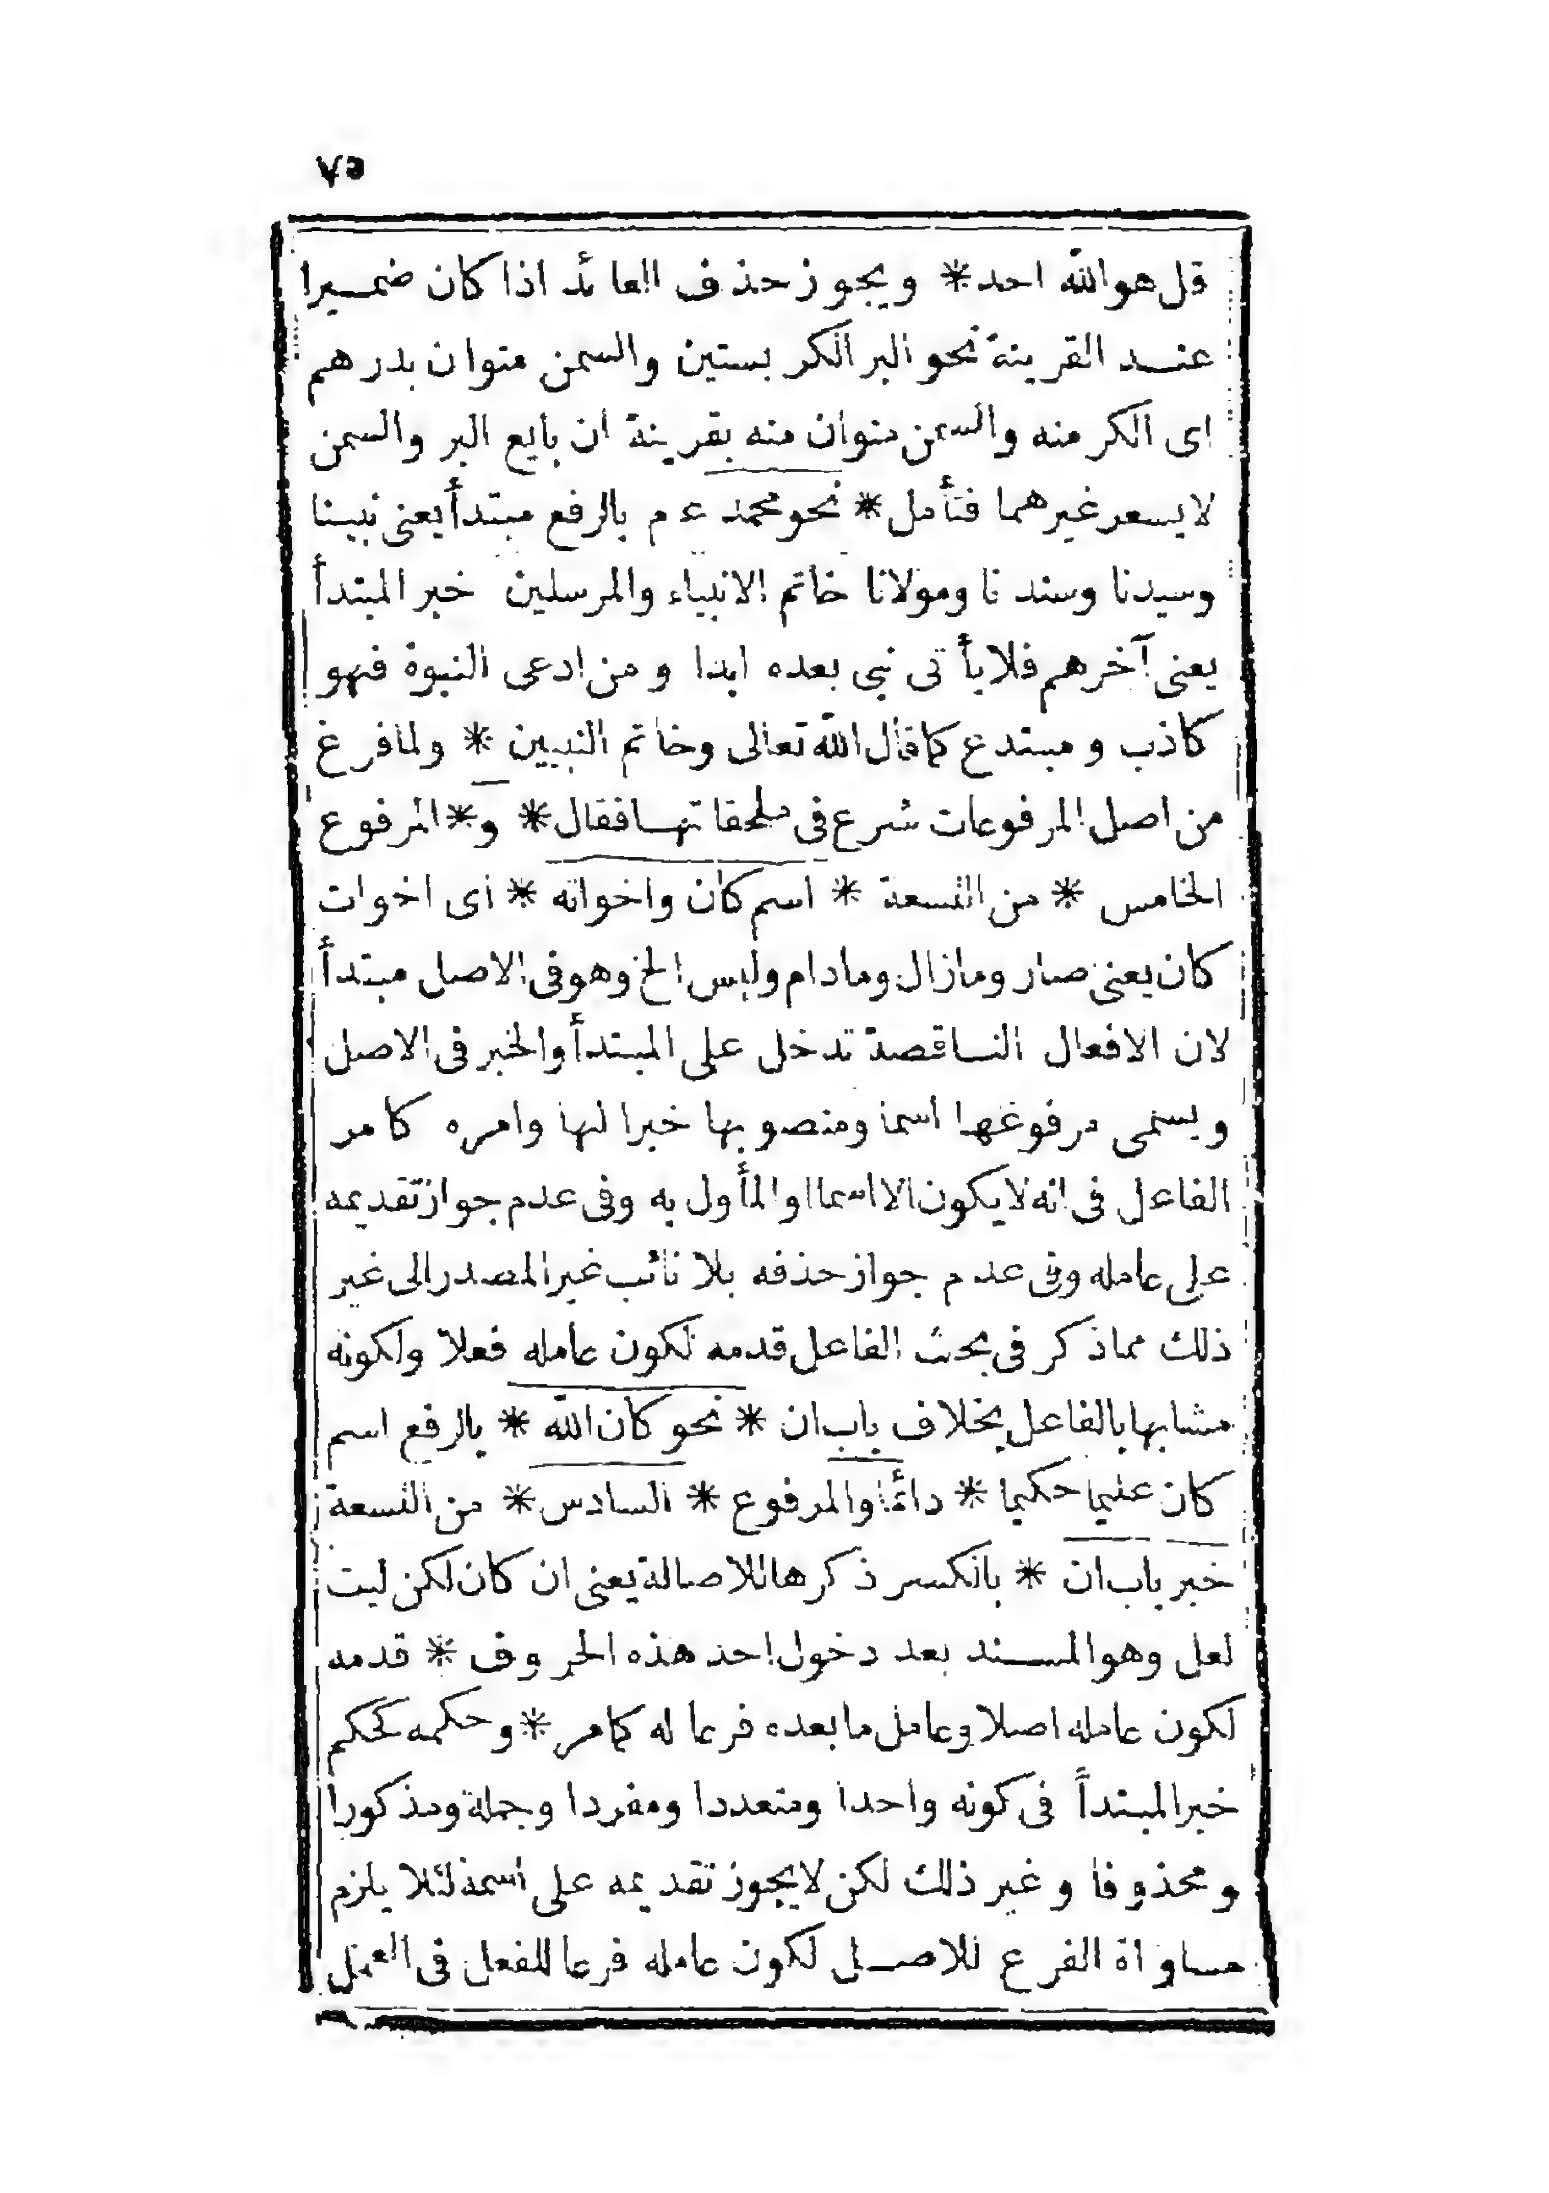 ٧٥
قل هو الله احد * ويجوز حذف العائد اذا كان ضميرا
عند القرينة نحو البر الكر بستين والسمن منوان بدرهم
اى الكر منه والسمن منوان منه بقرينة ان بايع البر والسمن
لا يسعر غيرهما فتأمل * نحو محمد ءم بالرفع مبتدأ يعنى نبينا
وسيدنا وسندنا ومولانا خاتم الانبياء والمرسلين خبر المبتدأ
يعنى آخرهم فلا يأتى نبى بعده ابدا ومن ادعى النبوة فهو
كاذب و مبتدع كما قال الله تعالى وخاتم النبيين * ولما فرغ
من اصل المرفوعات شرع فى ملحقاتها فقال * و * المرفوع
الخامس * من التسعة * اسم كان واخواته * اى اخوات
كان يعنى صار ومازال ومادام وليس الخ وهو فى الاصل مبتدأ
لان الافعال الناقصة تدخل على المبتدأ والخبر فى الاصل
ويسمى مرفوعها اسما ومنصوبها خبرا لها وامره كامر
الفاعل فى انه لا يكون الا اسما او المأول به وفى عدم جواز تقديمه
على عامله وفى عدم جواز حذفه بلا نائب غير المصدر الى غير
ذلك مما ذكر فى بحث الفاعل قدمه لكون عامله فعلا ولكونه
مشابها بالفاعل بخلاف باب ان * نحو كان الله * بالرفع اسم
كان عليما حكيما * دائما والمرفوع * السادس * من التسعة
خبر باب ان * بالكسر ذكرها للاصالة يعنى ان كان لكن ليت
لعل وهو المسند بعد دخول احد هذه الحروف * قدمه
لكون عامله اصلا وعامل ما بعده فرعا له كما مر * وحكمه كحكم
خبر المبتدأ فى كونه واحدا ومتعددا ومفردا وجملة ومذكورا
ومحذوفا وغير ذلك لكن لا يجوز تقديمه على اسمه لئلا يلزم
مساواة الفرع للاصل لكون عامله فرعا للفعل فى العمل